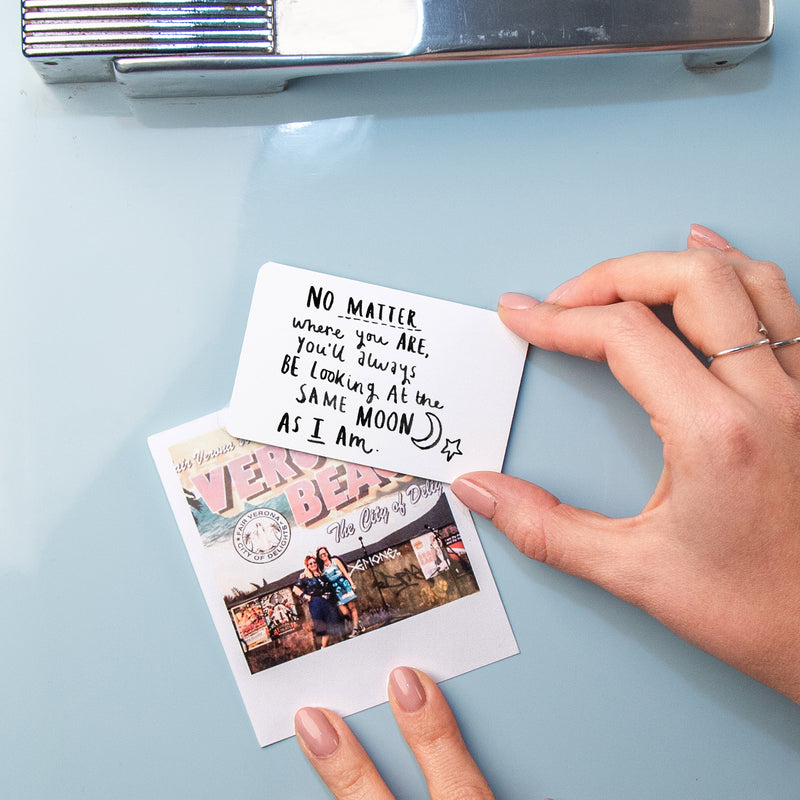 NO MATTER
where you ARE,
You'll always
BE Looking At the
SAME MOON
As I Am.
Fair Verona
VERO
BEA
The City of Deli
FAIR VERONA
CITY OF DELIGHTS